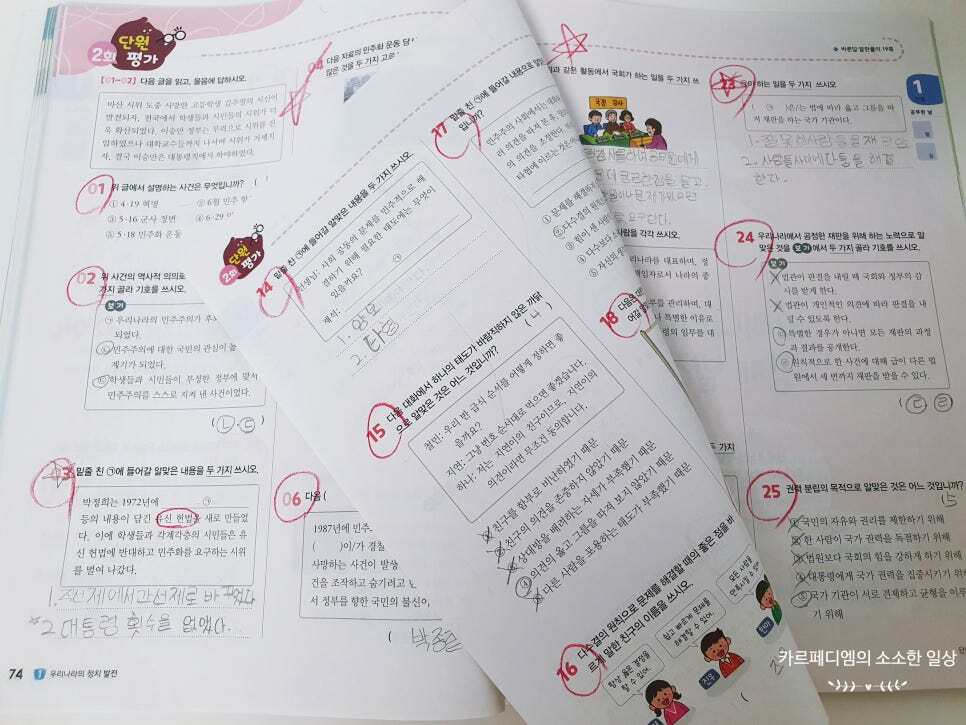 2회 단원 평가
[01~02] 다음 글을 읽고, 물음에 답하시오.
마산 시위 도중 사망한 고등학생 김주열의 시신이
발견되자, 전국에서 학생들과 시민들의 시위가 더
욱 확산되었다. 이승만 정부는 무력으로 시위를 진
압하였으나 대학교수들까지 나서며 시위가 거세지
자, 결국 이승만은 대통령직에서 하야하였다.
01 위 글에서 설명하는 사건은 무엇입니까? (
① 4·19 혁명 ② 6월 민주 항
③ 5·16 군사 정변 ④ 6·29
⑤ 5·18 민주화 운동
02 위 사건의 역사적 의의로
가지 골라 기호를 쓰시오.
보기
㉠ 우리나라의 민주주의가 후퇴
되었다.
㉡ 민주주의에 대한 국민의 관심이 높
계기가 되었다.
㉢ 학생들과 시민들이 부정한 정부에 맞서
민주주의를 스스로 지켜 낸 사건이었다.
(㉡, ㉢)
03 밑줄 친 ㉠에 들어갈 알맞은 내용을 두 가지 쓰시오.
박정희는 1972년에 ㉠
등의 내용이 담긴 유신 헌법을 새로 만들었
다. 이에 학생들과 각계각층의 시민들은 유
신 헌법에 반대하고 민주화를 요구하는 시위
를 벌여 나갔다.
1. 직선제에서 간선제로 바꾸었다
2. 대통령 횟수를 없앴다.
74 1 우리나라의 정치 발전
04 다음 자료의 민주화 운동
않은 것을 두 가지 고르
06 다음 (
1987년에 민주
( )이/가 경찰
사망하는 사건이 발생
건을 조작하고 숨기려고
서 정부를 향한 국민의 불신이
(박종철
2회 단원 평가
14 밑줄 친 ㉠에 들어갈 알맞은 내용을 두 가지 쓰시오.
선생님: 사회 공동의 문제를 민주적으로 해
결하기 위해 필요한 태도에는 무엇이
있을까요?
재석: ㉠
1. 양보
2. 타협
15 다음 대화에서 하나의 태도가 바람직하지 않은 까닭
으로 알맞은 것은 어느 것입니까? (4
철민: 우리 반 급식 순서를 어떻게 정하면 좋
을까요?
지연: 그냥 번호 순서대로 먹으면 좋겠습니다.
하나: 저는 지연이의 친구이므로, 지연이의
의견이라면 무조건 동의합니다.
① 친구를 함부로 비난하였기 때문
② 친구의 의견을 존중하지 않았기 때문
③ 상대방을 배려하는 자세가 부족했기 때문
④ 의견의 옳고 그름을 따져 보지 않았기 때문
⑤ 다른 사람을 포용하는 태도가 부족했기 때문
16 다수결의 원칙으로 문제를 해결할 때의 좋은 점을 바
르게 말한 친구의 이름을 쓰시오.
항상 옳은 결정을
할 수 있어.
쉽고 빠르게 문제를
해결할 수 있어.
진우
17 밑줄 친 ㉠에 들어갈 내용으로 알
입니까?
① 문제를 해결하
② 다수결의 원칙
18 다음은
어갈
같은 활동에서 국회가 하는 일을 두 가지 쓰
국정 감사
사람을 각각 쓰시오.
바른답·알찬풀이 19쪽
1
공부한 날
월
일
23 하는 일을 두 가지 쓰시오.
㉠ 은/는 법에 따라 옳고 그름을 따
져 재판을 하는 국가 기관이다.
1. 잘못한 사람들을 재판
2. 사람들 사이에 다툼을 해결
한다.
24 우리나라에서 공정한 재판을 위해 하는 노력으로 알
맞은 것을 보기에서 두 가지 골라 기호를 쓰시오.
보기
㉠ 법관이 판결을 내릴 때 국회와 정부의 감
시를 받게 한다.
㉡ 법관이 개인적인 의견에 따라 판결을 내
릴 수 있도록 한다.
㉢ 특별한 경우가 아니면 모든 재판의 과정
과 결과를 공개한다.
㉣ 원칙적으로 한 사건에 대해 급이 다른 법
원에서 세 번까지 재판을 받을 수 있다.
(㉢, ㉣)
25 권력 분립의 목적으로 알맞은 것은 어느 것입니까?
(5
① 국민의 자유와 권리를 제한하기 위해
② 한 사람이 국가 권력을 독점하기 위해
③ 법원보다 국회의 힘을 강하게 하기 위해
④ 대통령에게 국가 권력을 집중시키기 위해
⑤ 국가 기관이 서로 견제하고 균형을 이루
기 위해
카르페디엠의 소소한 일상